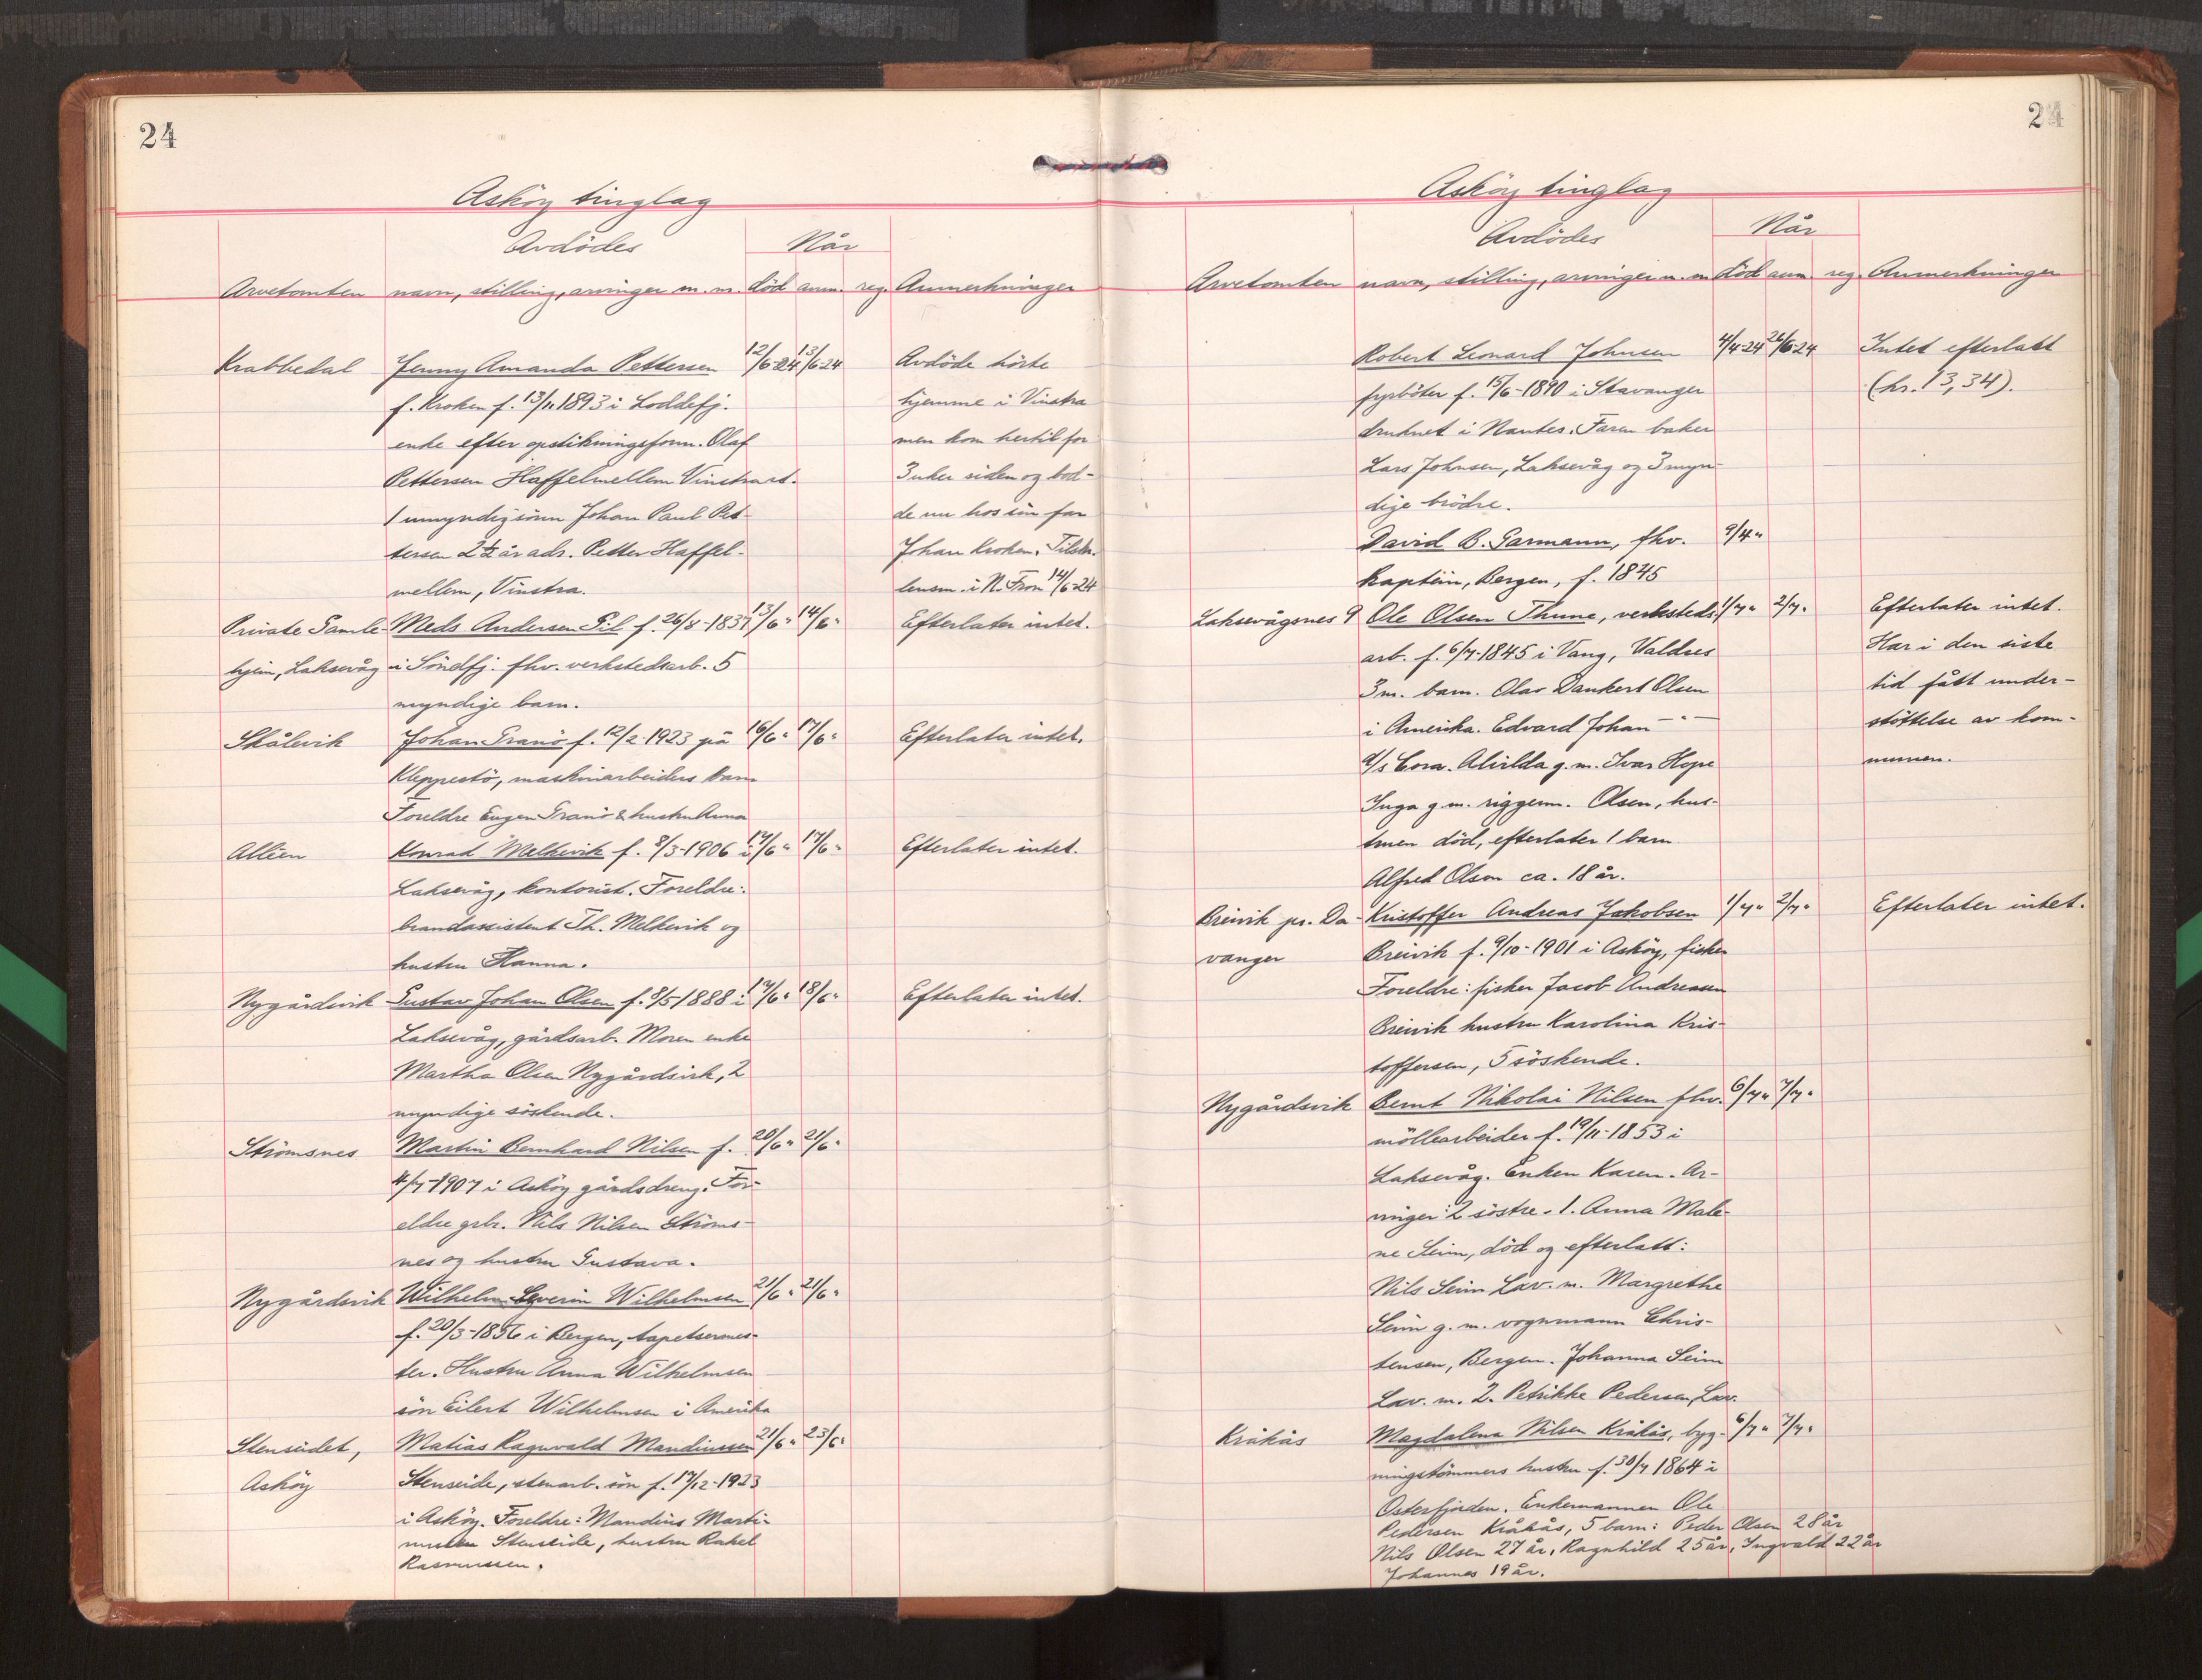 24
Asköy tinglag
Avdödes
Når
Arvetomten navn, stilling, arvinger m.m. död anm. reg. Anmerkninger
Krabbedal Jenny Amanda Pettersen 12/6-24 13/6-24 Avdöde hörte
f. Kroken f. 13/11 1893 i Loddefj. hjemme i Vinstra
enke efter opstikningsform. Olaf men kom hertil for
Pettersen Haffelmellem Vinstra st. 3 uker siden og bod-
1 umyndig sönn Johan Paul Pet- de nu hos sin far
tersen 2½ år adr. Petter Haffel- Johan Kroken. Tilskr.
mellem, Vinstra. lensm. i N. Fron 14/6-24
Private Gamle- Meds Andersen Gil f. 26/8-1837 13/6 " 14/6 " Efterlater intet.
hjem, Laksevåg i Söndfj. fhv. verkstedsarb. 5
myndige barn.
Skålevik Johan Tranö f. 12/2-1923 på 16/6 " 17/6 " Efterlater intet.
Kleppestö, maskinarbeiders barn
Foreldre Eugen Tranö & hustru Anna
Alléen Konrad Melkevik f. 8/3-1906 i 17/6 " 17/6 " Efterlater intet.
Laksevåg, kontorist. Foreldre:
brandassistent Th. Melkevik og
hustru Hanna.
Nygårdsvik Gustav Johan Olsen f. 8/5 1888 i 17/6 " 18/6 " Efterlater intet.
Laksevåg, gårdsarb. Moren enke
Martha Olsen Nygårdsvik, 2
myndige söskende.
Strömsnes Martin Bernhard Nilsen f. 20/6 " 21/6 "
4/7-1907 i Asköy gårdsdreng. For-
eldre grbr. Nils Nilsen Ströms-
nes og hustru Gustava.
Nygårdsvik Wilhelm Severin Wilhelmsen 21/6 " 21/6 "
f. 20/3-1856 i Bergen, tapetsermes-
ter. Hustru Anna Wilhelmsen
sön Eilert Wilhelmsen i Amerika
Stenseidet, Matias Ragnvald Mandiussen 21/6 " 23/6 "
Asköy Stenseide, stenarb. sön f. 17/12-1923
i Asköy. Foreldre: Mandius Marti-
nussen Stenseide, hustru Rakel
Rasmussen.
24
Asköy tinglag
Avdödes
Når
Arvetomten navn, stilling, arvinger m.m. död anm. reg. Anmerkninger
Robert Leonard Johnsen 4/4-24 26/6-24 Intet efterlatt
fyrböter f. 15/6-1890 i Stavanger (kr. 13,34).
druknet i Nantes. Faren baker
Lars Johnsen, Laksevåg og 3 myn-
dige brödre.
David B. Garmann, fhv. 9/4 "
kaptein, Bergen, f. 1845
Laksevågsnes 9 Ole Olsen Thune, verksteds- 1/7 " 2/7 " Efterlater intet.
arb. f. 6/7-1845 i Vang, Valdres Har i den siste
3 m. barn. Olav Dankert Olsen tid fått under-
i Amerika. Edvard Johan — " — stöttelse av kom-
d/s Cora. Alvilda g.m. Ivar Hope munen.
Inga g.m. riggerm. Olsen, hus-
truen död, efterlater 1 barn
Alfred Olsen ca. 18 år.
Breivik pr. Da- Kristoffer Andreas Jakobsen 1/7 " 2/7 " Efterlater intet.
vanger Breivik f. 9/10-1901 i Asköy, fisker
Foreldre: fisker Jacob Andreassen
Breivik hustru Karolina Kris-
toffersen, 5 söskende.
Nygårdsvik Bernt Nikolai Nilsen fhv. 6/7 " 7/7 "
möllearbeider f. 19/11-1853 i
Laksevåg. Enken Karen. Ar-
vinger: 2 söstre. 1. Anna Male-
ne Seim, död og efterlatt:
Nils Seim Lav. m. Margrethe
Seim g.m. vognmann Chris-
tensen, Bergen. Johanna Seim
Lav. m. 2. Petrikke Pedersen, Lav.
Kråkås Magdalena Nilsen Kråkås, byg- 6/7 " 7/7 "
ningstömmers hustru f. 30/7 1864 i
Osterfjorden. Enkemannen Ole
Pedersen Kråkås, 5 barn: Peder Olsen 28 år
Nils Olsen 27 år, Ragnhild 25 år, Ingvald 22 år
Johannes 19 år.